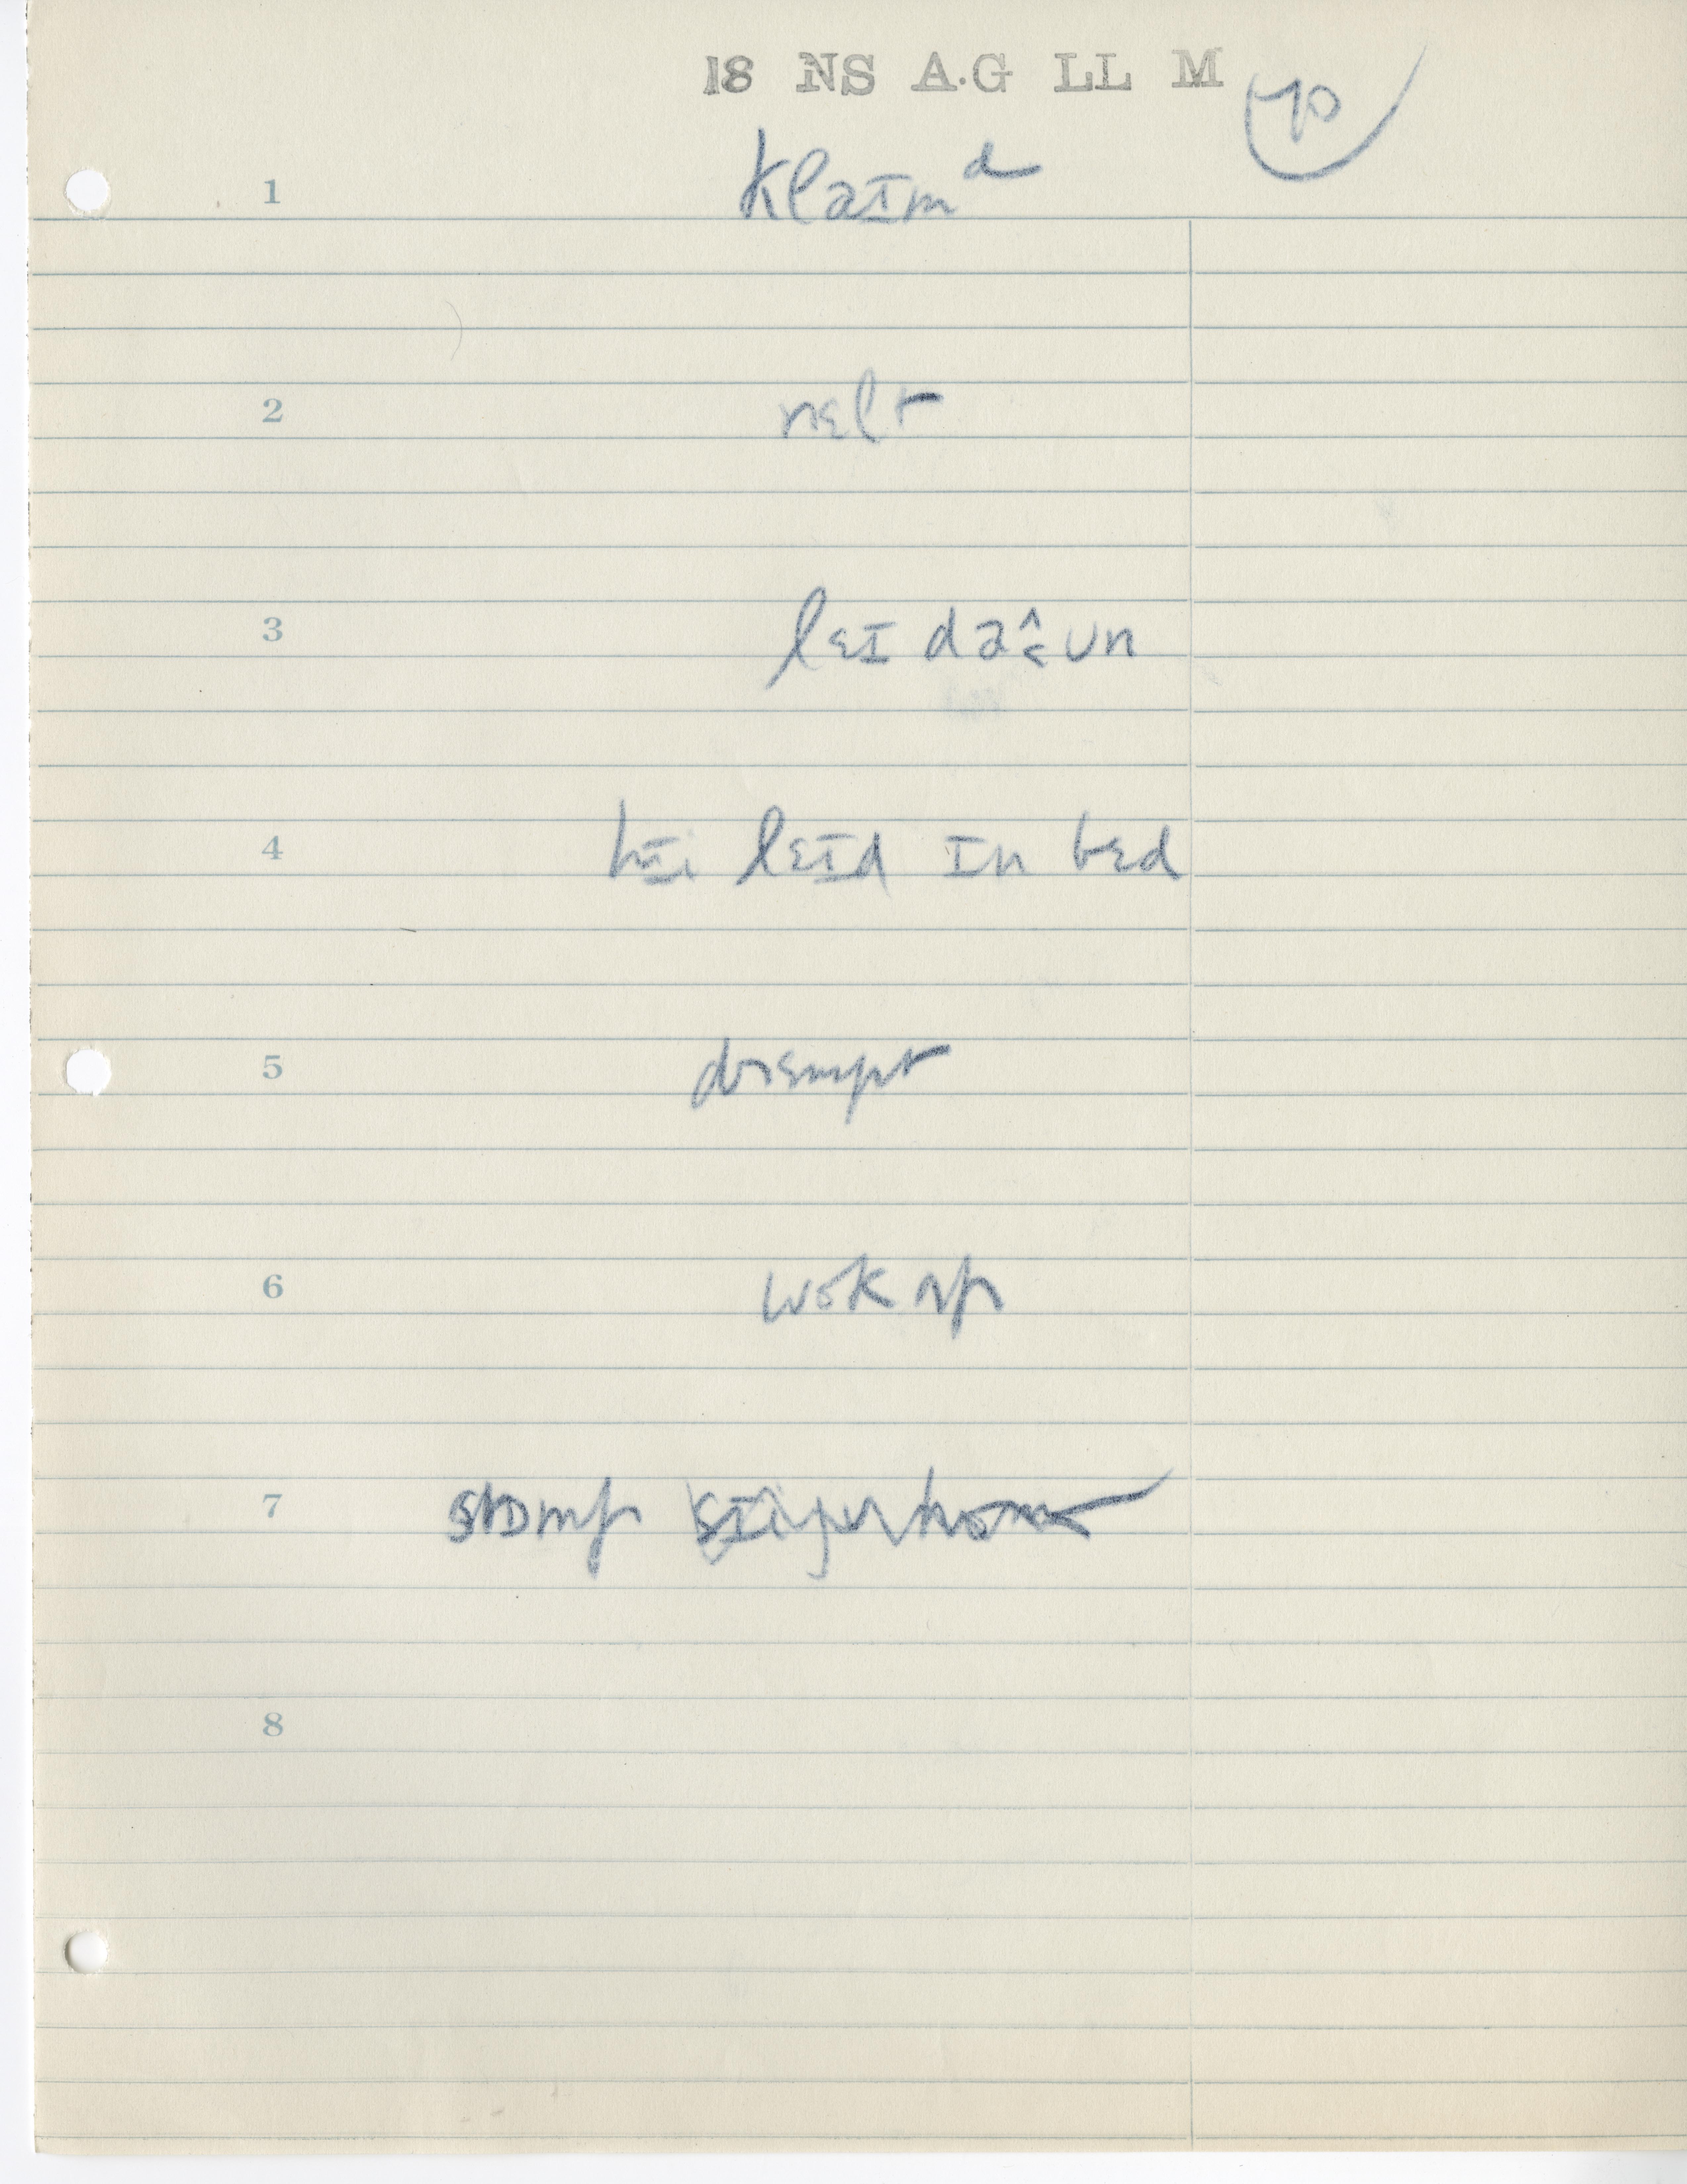 18 NS A.G LL M 70
1 klaɪmd
2 nɛlt
3 lɛɪ daʊn
4 hɪi lɛɪd ɪn bɛd
5 drɛmpt
6 wok ʌp
7 stɒmp
8